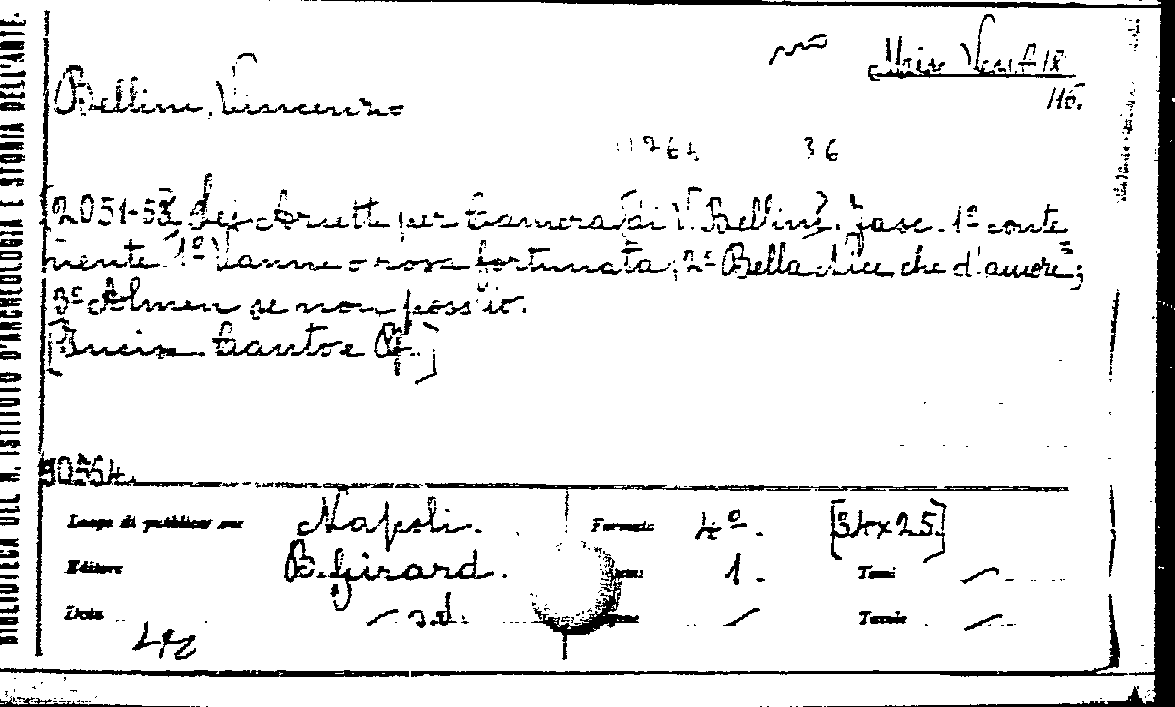 BIBLIOTECA DEL R. ISTITUTO D'ARCHEOLOGIA E STORIA DELL'ARTE.
Bellini, Vincenzo
116.
36
[2051-53] Sei Ariette per Camera di V. Bellini. Fasc. 1º conte
nente 1º Vanne o rosa fortunata; 2º Bella Nice che d'amore;
3º Almen se non poss'io.
[Canto e Pf.]
90554.
Luogo di pubblicazione Napoli. Formato 4º. [34x25]
Editore B. Girard. 1. Tomi —
Data — s.d. — Tavole —